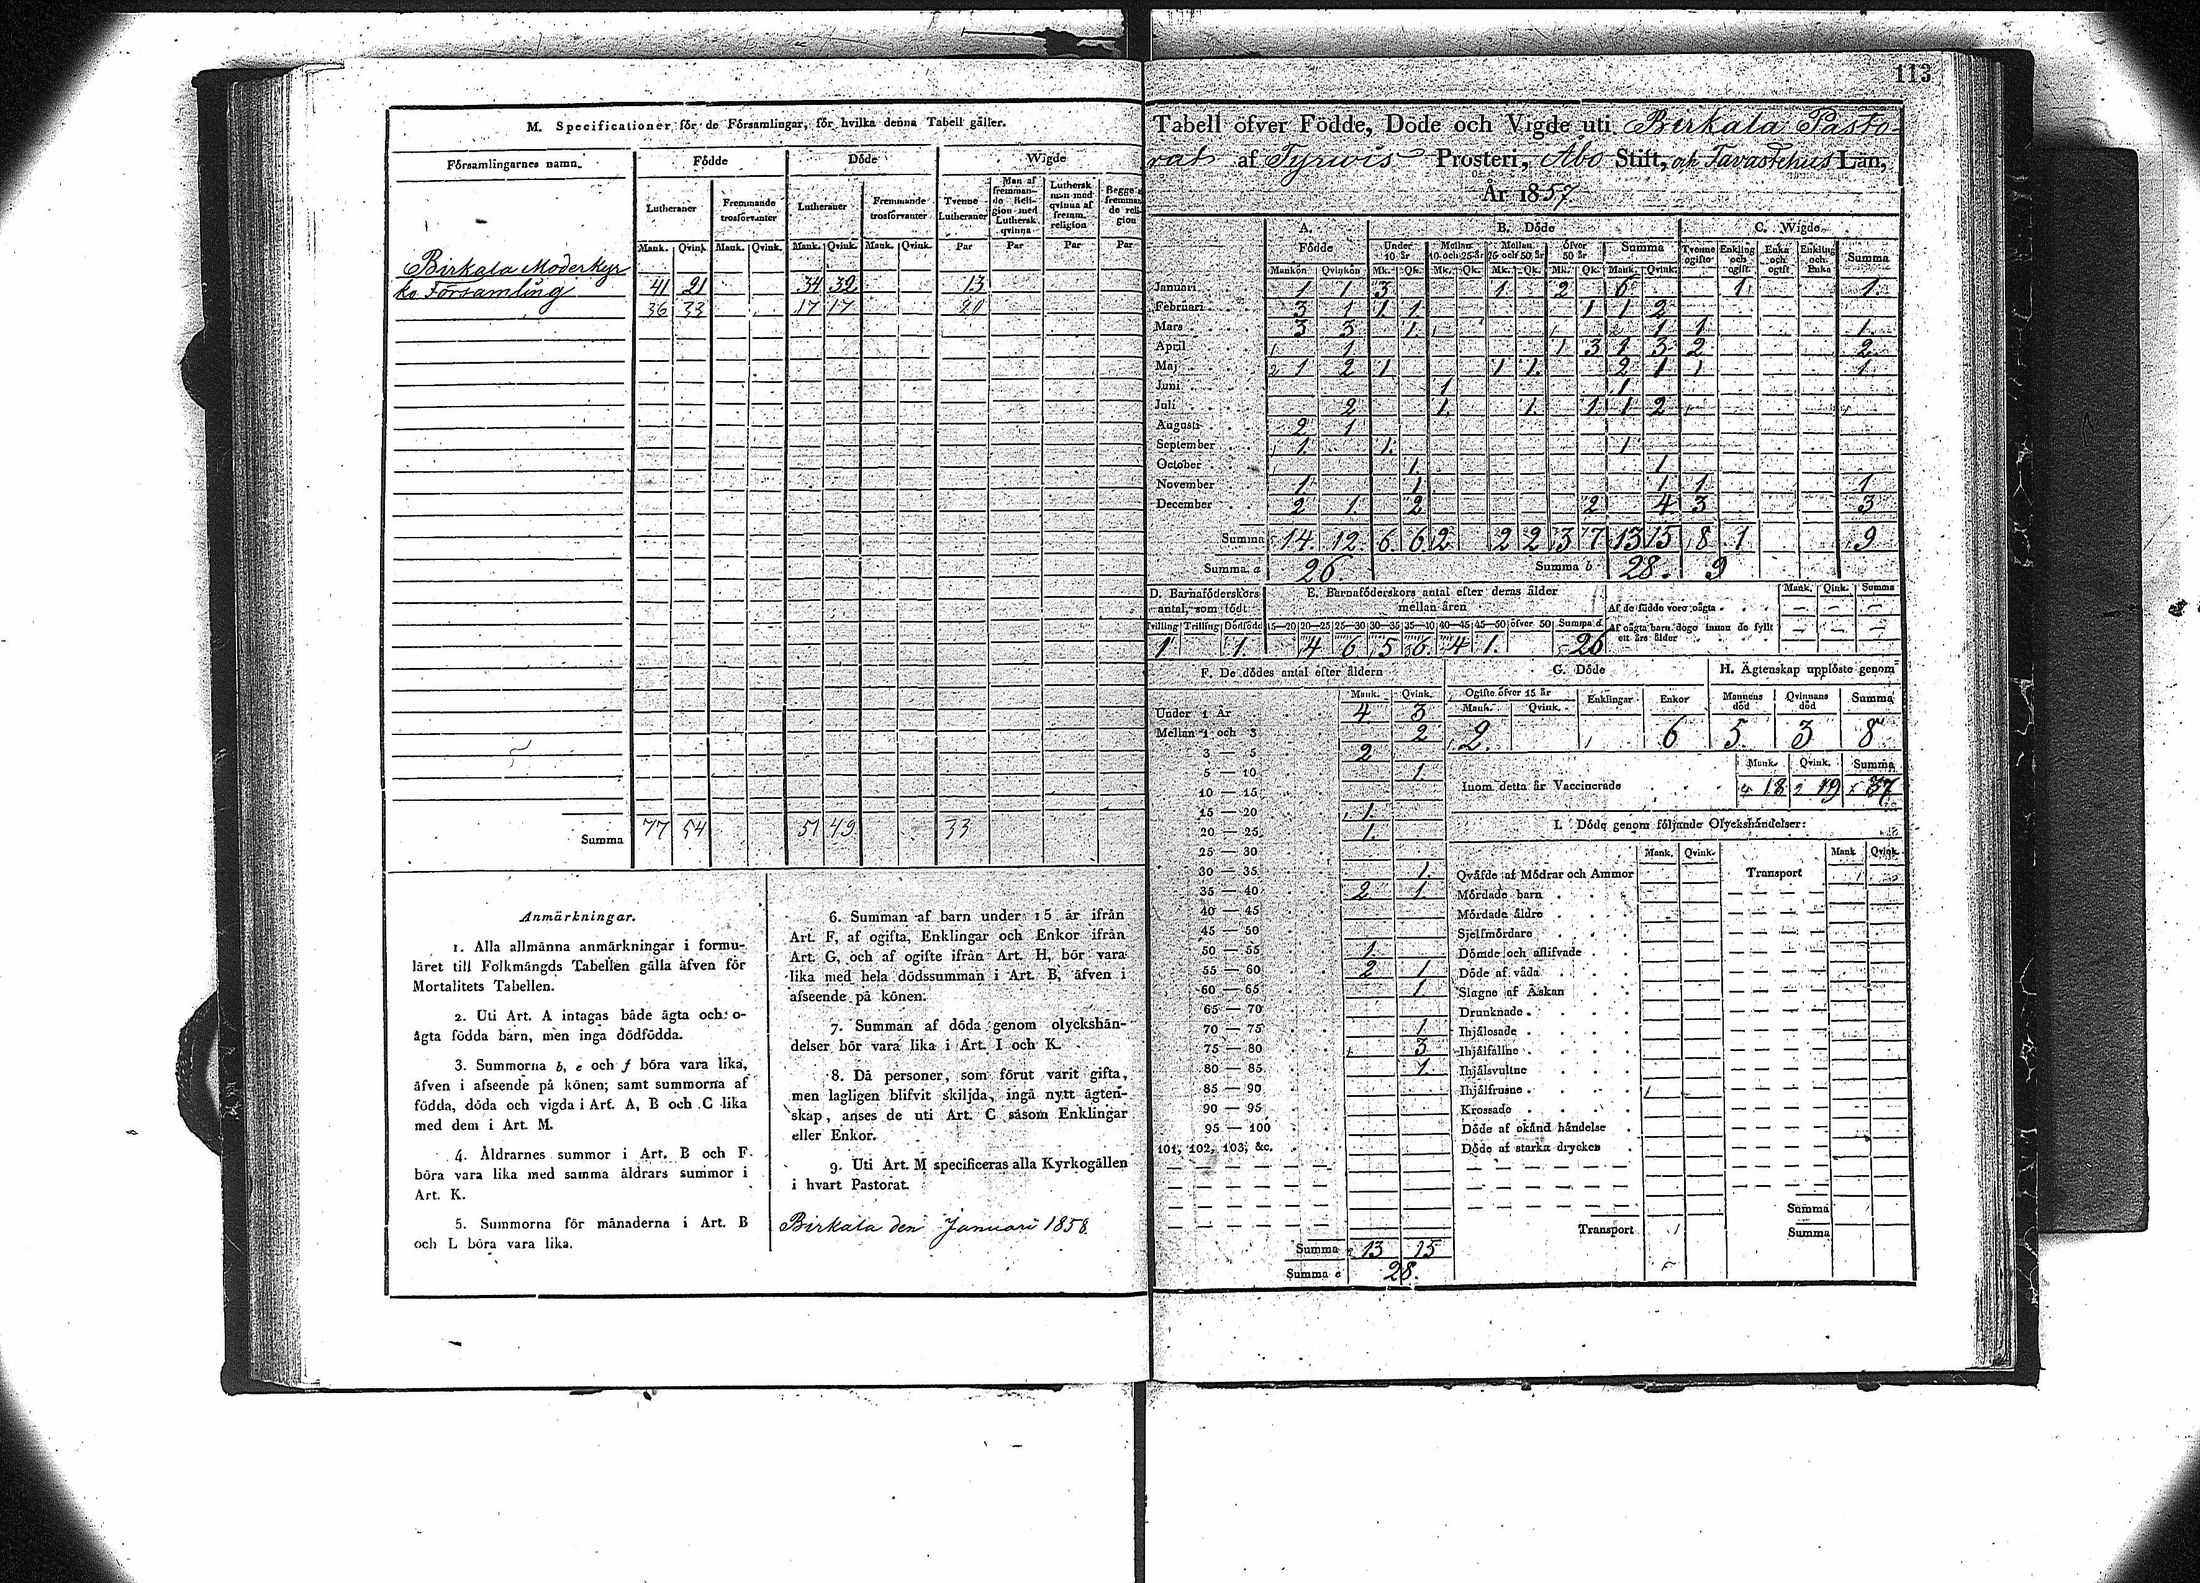 113
M. Specificationer för de Församlingar, för hvilka denna Tabell gäller.
Församlingarnes namn.
Födde
Döde
Wigde
Lutheraner
Fremmande trosförvanter
Lutheraner
Fremmande trosförvanter
Tvenne Lutheraner
Man af fremmande Religion med Luthersk qvinna
Luthersk man med qvinna af fremm. religion
Begge fremmande religion
Mank. Qvink. Mank. Qvink. Mank. Qvink. Mank. Qvink. Par Par Par Par
Birkala Moderkyr
ko Församling 41 21 34 32 13
36 33 17 17 20
Summa 77 54 51 49 33
Anmärkningar.
1. Alla allmänna anmärkningar i formu-
läret till Folkmängds Tabellen gälla äfven för
Mortalitets Tabellen.
2. Uti Art. A intagas både ägta och o-
ägta födda barn, men inga dödfödda.
3. Summorna b, e och f böra vara lika,
äfven i afseende på könen; samt summorna af
födda, döda och vigda i Art. A, B och C lika
med dem i Art. M.
4. Åldrarnes summor i Art. B och F
böra vara lika med samma åldrars summor i
Art. K.
5. Summorna för månaderna i Art. B
och L böra vara lika.
6. Summan af barn under 15 år ifrån
Art. F, af ogifta, Enklingar och Enkor ifrån
Art. G, och af ogifte ifrån Art. H, bör vara
lika med hela dödssumman i Art. B, äfven i
afseende på könen.
7. Summan af döda genom olyckshän-
delser bör vara lika i Art. I och K.
8. Då personer, som förut varit gifta,
men lagligen blifvit skiljda, ingå nytt ägten-
skap, anses de uti Art. C såsom Enklingar
eller Enkor.
9. Uti Art. M specificeras alla Kyrkogällen
i hvart Pastorat.
Birkala den Januari 1858.
Tabell öfver Födde, Döde och Vigde uti Birkala Pasto-
rat af Tyrwis Prosteri, Åbo Stift, och Tavastehus Län,
År 1857
A. Födde
B. Döde
C. Wigde
Under 10 år
Mellan 10 och 25 år
Mellan 25 och 50 år
öfver 50 år
Summa
Tvenne ogifte
Enkling och ogift
Enka och ogift
Enkling och Enka
Summa
Mankön Qvinkön Mk. Qk. Mk. Qk. Mk. Qk. Mk. Qk. Mank. Qvink.
Januari 1 1 3 1 2 6 1 1
Februari 3 1 1 1 1 1 2
Mars 3 3 1 1 1 1
April 1 1 3 1 3 2 2
Maj 1 2 1 1 1 2 1 1 1
Juni 1 1
Juli 2 1 1 1 1 2
Augusti 2 1
September 1 1 1
October 1 1
November 1 1 1 1 1
December 2 1 2 2 4 3 3
Summa 14 12 6 6 2 2 2 3 7 13 15 8 1 9
Summa a 26 Summa b 28 9
D. Barnaföderskors antal, som födt
E. Barnaföderskors antal efter deras ålder mellan åren
Mank. Qink. Summa
Af de födde voro oägta — — —
Af oägta barn dogo innan de fyllt ett års ålder — — —
Tvilling Trilling Dödfödde 15—20 20—25 25—30 30—35 35—40 40—45 45—50 öfver 50 Summa d
1 1 4 6 5 6 4 1 26
F. De dödes antal efter åldern
Mank. Qvink.
Under 1 År 4 3
Mellan 1 och 3 2
3 — 5 2
5 — 10 1
10 — 15
15 — 20 1
20 — 25 1
25 — 30
30 — 35 1
35 — 40 2 1
40 — 45
45 — 50
50 — 55 1
55 — 60 2 1
60 — 65 1
65 — 70
70 — 75 1
75 — 80 3
80 — 85 1
85 — 90
90 — 95
95 — 100
101, 102, 103, &c.
Summa 13 15
Summa e 28
G. Döde
Ogifte öfver 15 år
Mank. Qvink.
Enklingar
Enkor
2 6
H. Ägtenskap upplöste genom
Mannens död
Qvinnans död
Summa
5 3 8
Mank. Qvink. Summa
Inom detta år Vaccinerade 18 19 37
I. Döde genom följande Olyckshändelser:
Mank. Qvink. Mank Qvink.
Qväfde af Mödrar och Ammor Transport
Mördade barn
Mördade äldre
Sjelfmördare
Dömde och aflifvade
Döde af våda
Slagne af Åskan
Drunknade
Ihjälosade
Ihjälfallne
Ihjälsvultne
Ihjälfrusne
Krossade
Döde af okänd händelse
Döde af starka drycker
Summa
Transport Summa